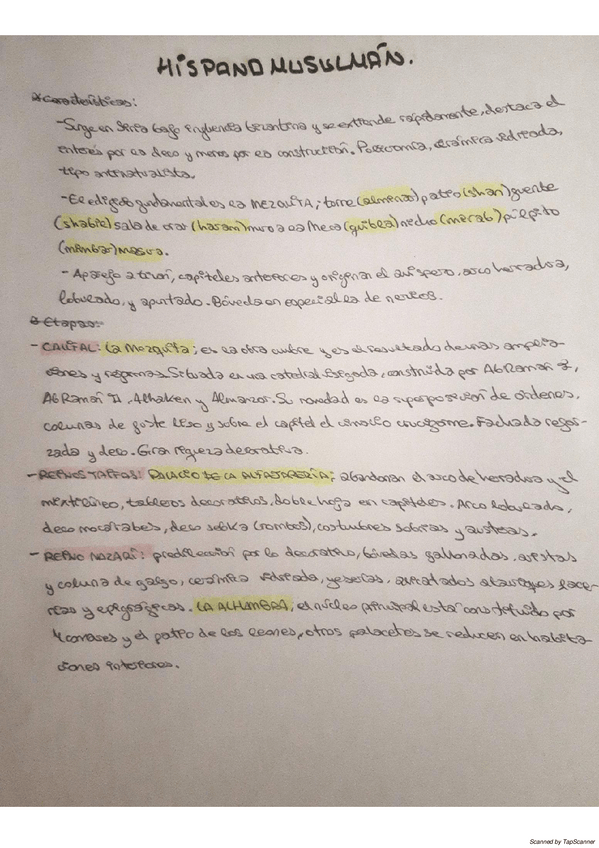 HISPANOMUSULMÁN.
*Características:
-Surge en Siria bajo influencia bizantina y se extiende rapidamente, destaca el
interés por la deco y menos por la construcción. Policromía, cerámica vidreada,
tipo antinaturalista.
-El edificio fundamental es la MEZQUITA; torre (alminar) patio (shan) fuente
(shabil) sala de orar (haram) muro a la Meca (quibla) nicho (mirab) púlpito
(mimbar)
- Aparejo a tizón, capiteles anteriores y originan el avispero, arco herradura,
lobulado, y apuntado. Bóveda en especial la de nervios.
* Etapas:
- CALIFAL: La Mezquita; es la obra cumbre y es el resultado de unas amplia-
ciones y reformas. Situada en una catedral construida por AbRamán I,
AbRamán II, Alhaken y Almanzor. Su novedad es la superposición de ordenes,
columnas de fuste liso y sobre el capitel el cimacio cruciforme. Fachada
y deco. Gran riqueza decorativa.
- REINOS TAIFAS: PALACIO DE LA ALJAFERÍA; abandonan el arco de herradura y el
mixtilíneo, tableros decorativos, doble hoja en capiteles. Arco lobulado,
deco mocárabes, deco sebka (rombos), costumbres sobrias y austeras.
- REINO NAZARÍ: predilección por lo decorativo, bóvedas gallonadas, aristas
y coluna de galgo, cerámica vidreada, yeserías, atauriques lace-
rías y epigráficas. LA ALHAMBRA; el núcleo principal está constituido por
Comares y el patio de los leones, otros palacetes se reducen en habita
ciones interiores.
Scanned by TapScanner